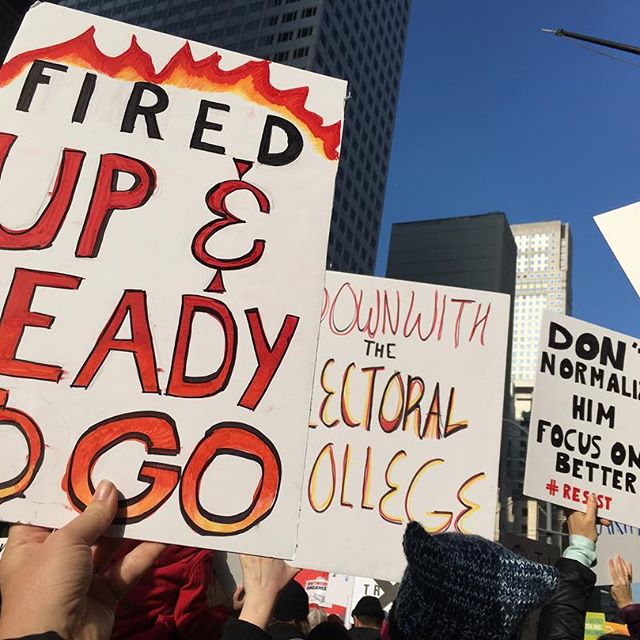 FIRED
UP &
READY
TO GO
DOWN WITH
THE
ELECTORAL
COLLEGE
DON'T
NORMALIZE
HIM
FOCUS ON
BETTER
#RESIST